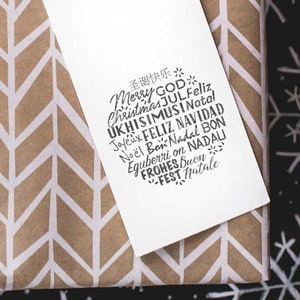 圣诞快乐
Merry GOD
Christmas JUL Feliz
UKHISIMUSI Natal
Joyeux FELIZ NAVIDAD
Noël Bon Nadal BON
Eguberri on NADALI
FROHES Buon
FEST Natale